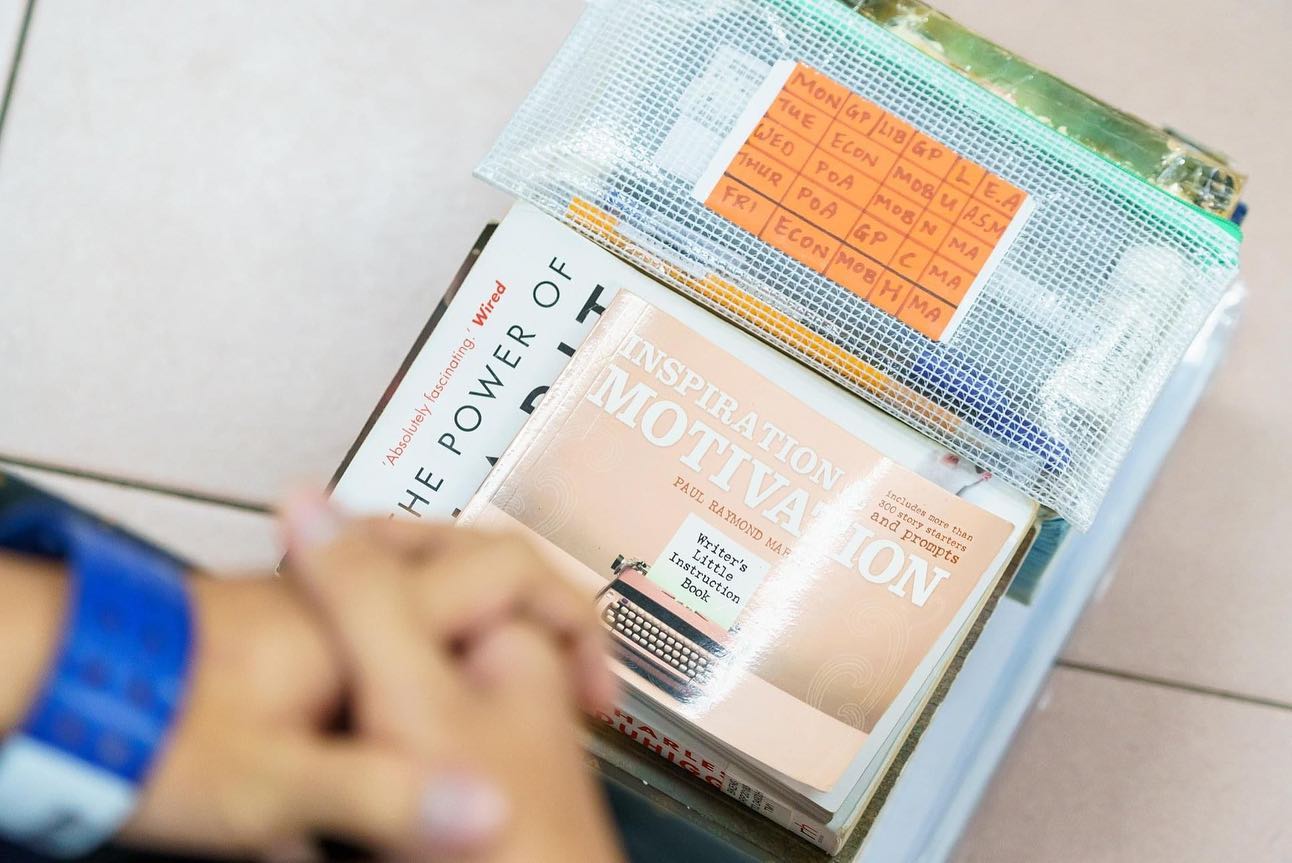 MON GP LIB GP L E.A
TUE ECON MOB U A.S.M
WED POA MOB N MA
THUR POA GP C MA
FRI ECON MOB H MA
'Absolutely fascinating.' Wired
THE POWER OF
INSPIRATION
MOTIVATION
PAUL RAYMOND
includes more than
300 story starters
and prompts
Writer's
Little
Instruction
Book
CHARLES
DUHIGG